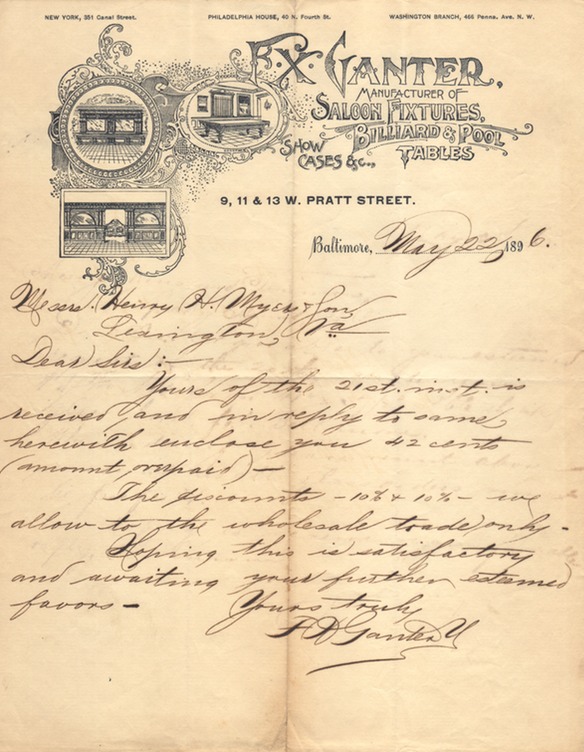 NEW YORK, 351 Canal Street. PHILADELPHIA HOUSE, 40 N. Fourth St. WASHINGTON BRANCH, 466 Penna. Ave. N. W.
F. X. GANTER,
MANUFACTURER OF
SALOON FIXTURES,
BILLIARD & POOL
TABLES
SHOW
CASES &c.,
9, 11 & 13 W. PRATT STREET.
Baltimore, May 22, 1896.
Messrs. Henry H. Myer & Son,
Lexington, Va
Dear Sirs:-
Yours of the 21st. inst. is
received, and in reply to same,
herewith enclose you 42 cents
(amount overpaid) -
The discounts - 10% & 10% - we
allow to the wholesale trade only -
Hoping this is satisfactory
and awaiting your further esteemed
favors - Yours truly
Ganter